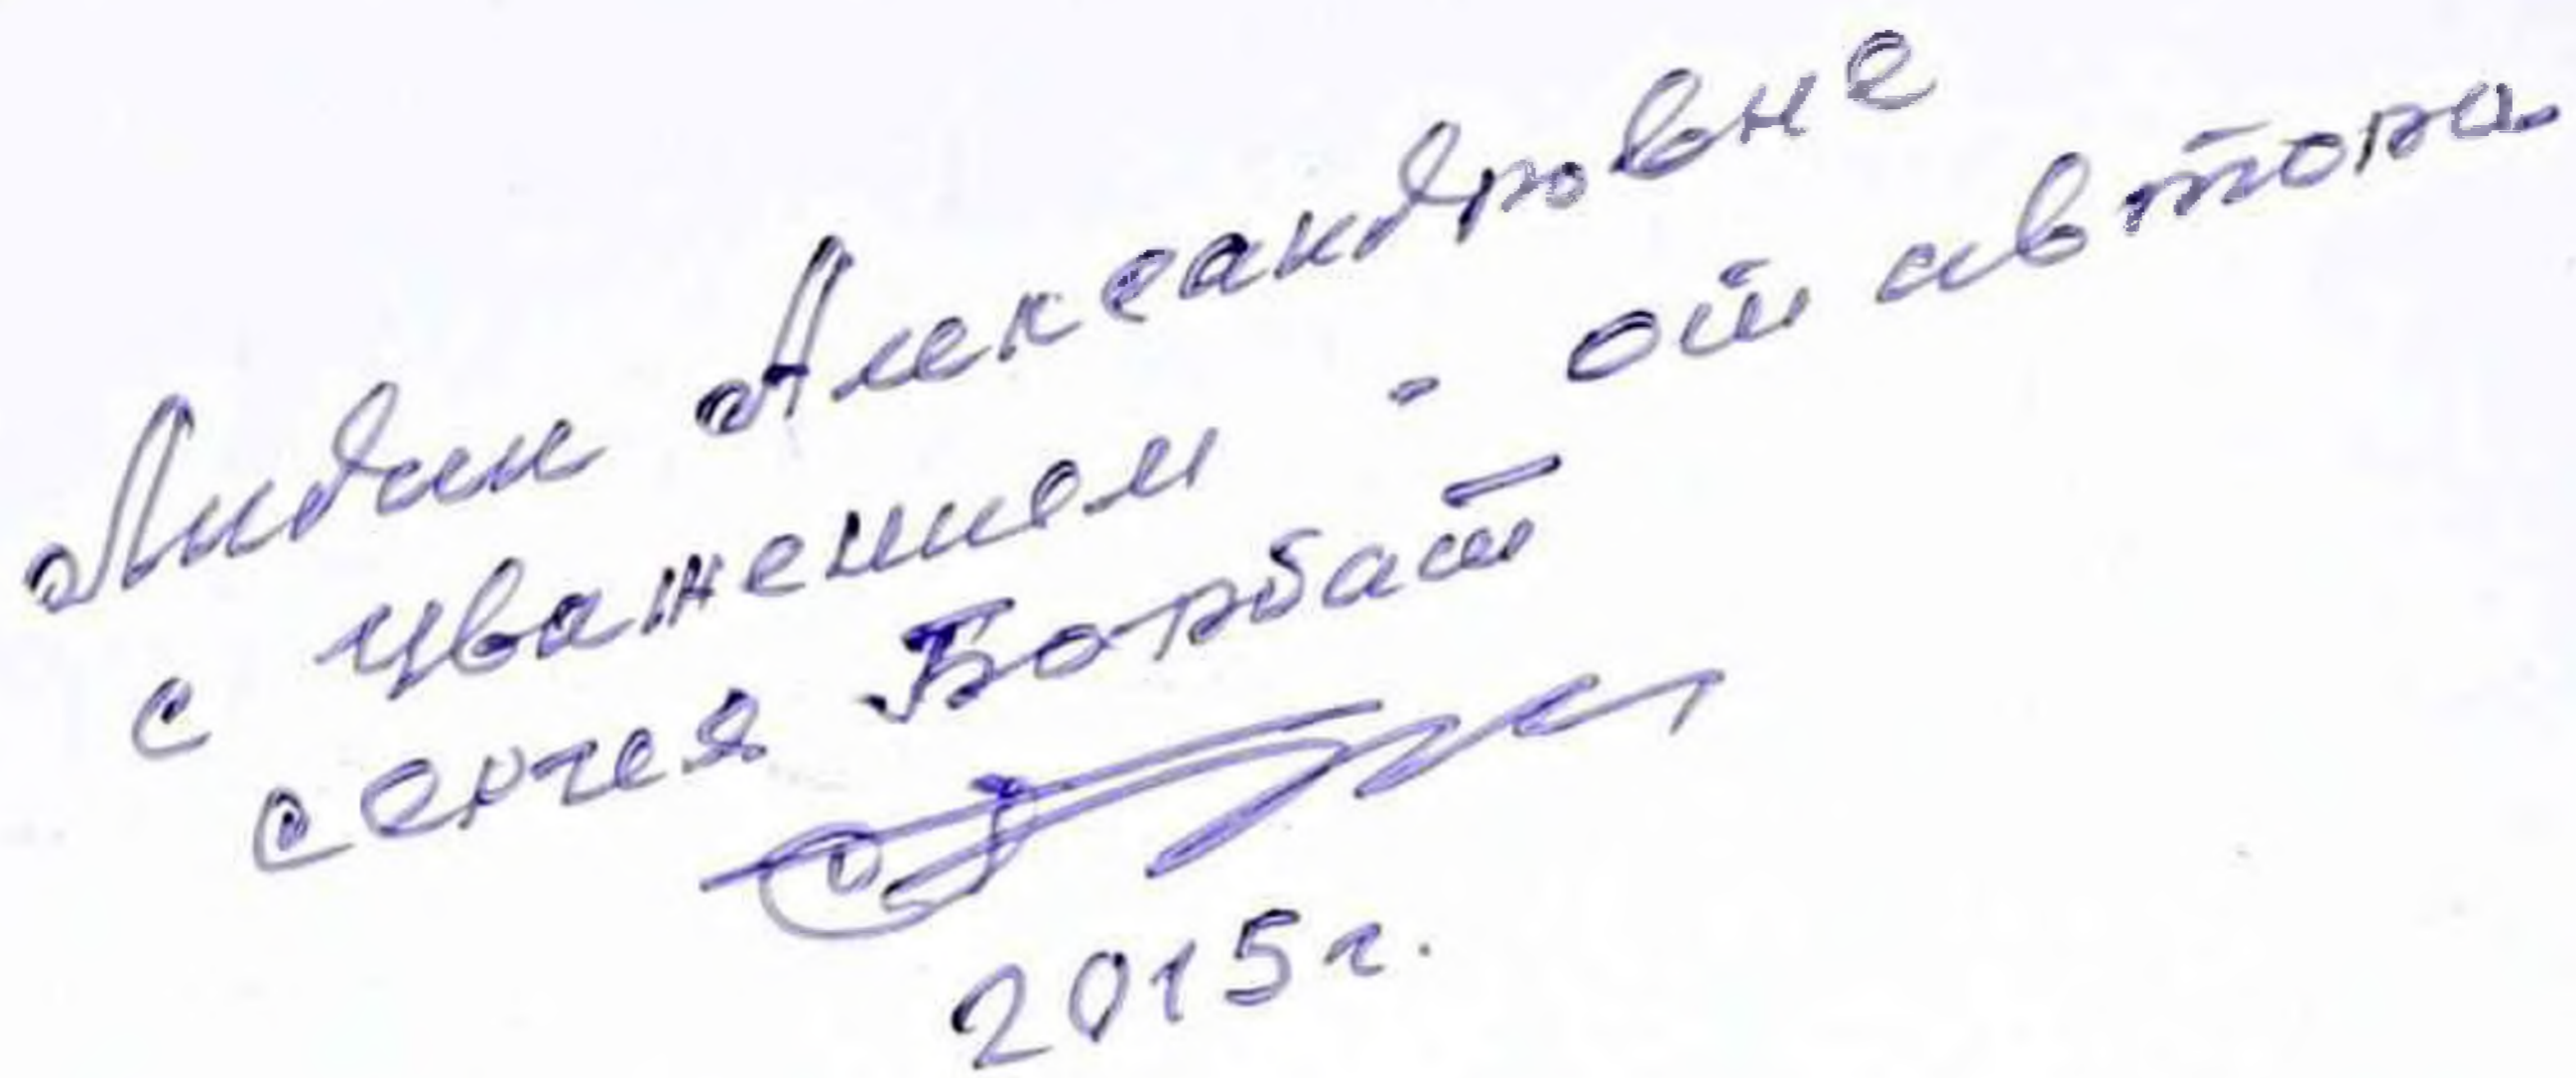 Лидии Александровне
с уважением - от автора
Сергея Борбат
2015г.